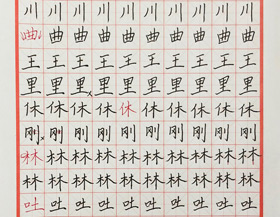 川川川川川川川川川川
曲曲曲曲曲曲曲曲曲曲
王王王王王王王王王王
里里里里里里里里里里
休休休休休休休休休休
刚刚刚刚刚刚刚刚刚刚
林林林林林林林林林林
林林林林林林林林林林
吐吐吐吐吐吐吐吐吐吐